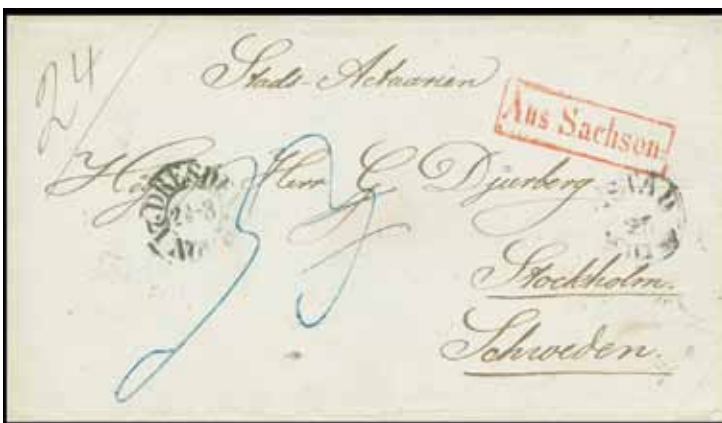 24
Stads-Actuarien
Aus Sachsen
Herr G. Djurberg
DRESD
24-8
Stockholm.
Schweden.